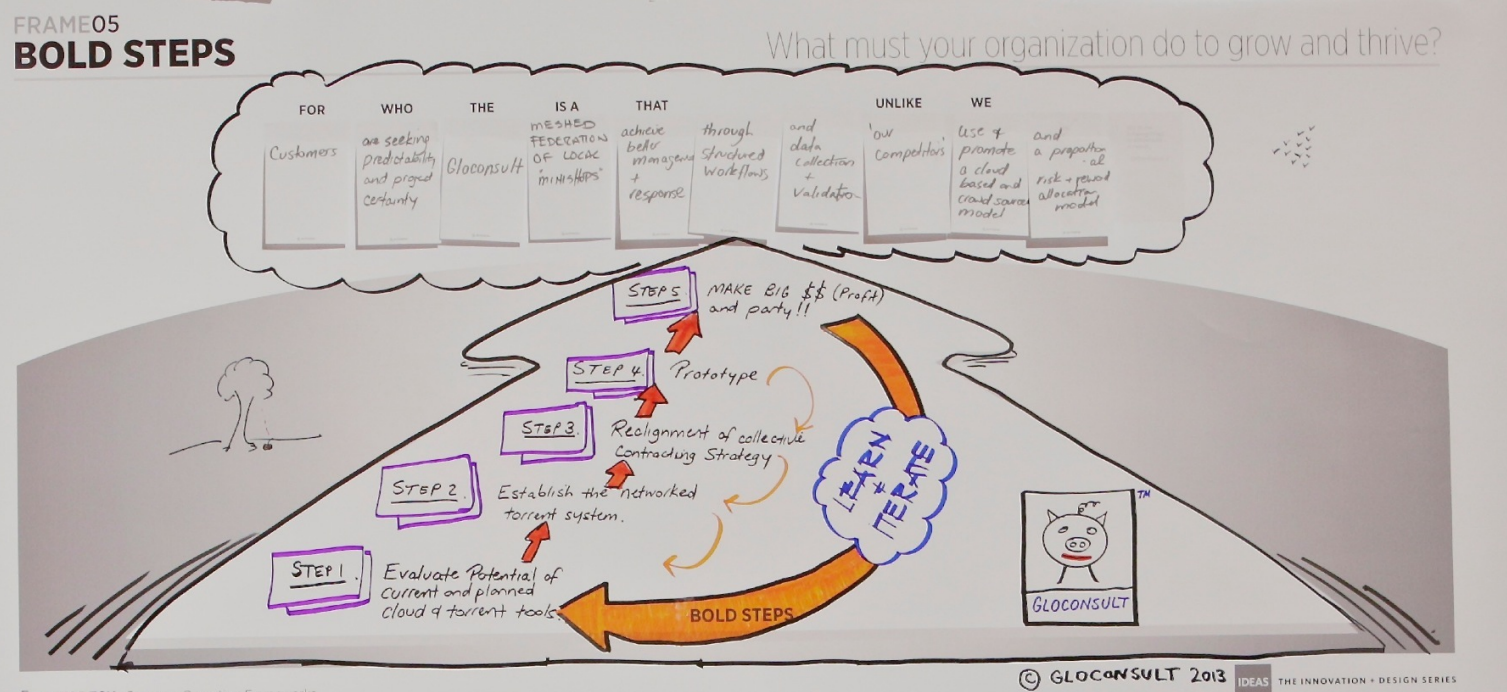 FRAME05
BOLD STEPS
What must your organization do to grow and thrive?
FOR
Customers
WHO
are seeking
predictability
and project
certainty
THE
Gloconsult
IS A
MESHED
FEDERATION
OF LOCAL
"MINISHOPS"
THAT
achieve
better
+
response
through
structured
workflows
and
data
collection
+
UNLIKE
our
competitors
WE
use &
promote
a cloud
based and
crowd source
model
and
a proportion
al
risk + reward
allocation
model
STEP 5
MAKE BIG $$ (Profit)
and party!!
STEP 4.
Prototype
STEP 3.
Realignment of collective
Contracting Strategy
STEP 2.
Establish the networked
torrent system.
STEP 1.
Evaluate Potential of
current and planned
cloud & torrent tools.
LEARN
+
ITERATE
BOLD STEPS
TM
GLOCONSULT
© GLOCONSULT 2013
IDEAS THE INNOVATION + DESIGN SERIES